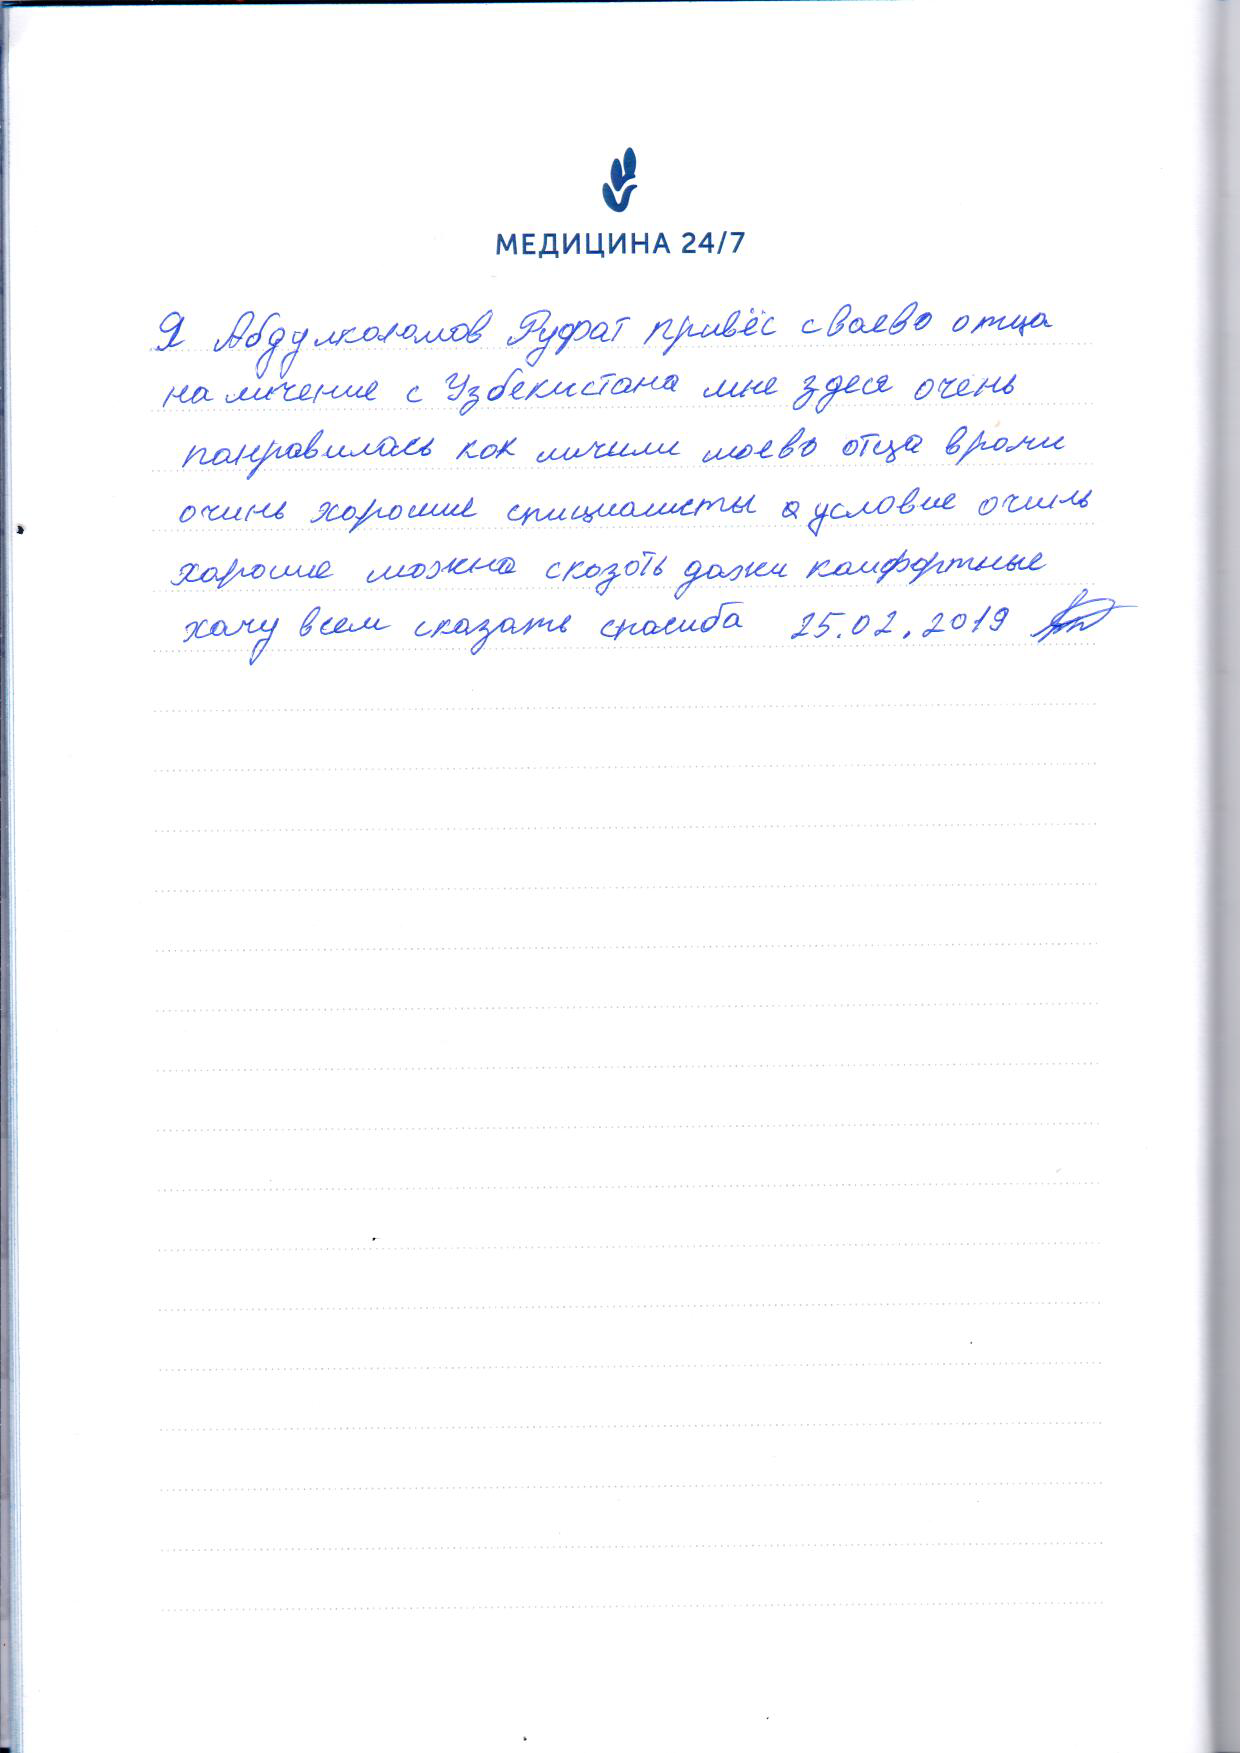 МЕДИЦИНА 24/7
Я Абдулкаламов Руфат привёс сваево отца
на личение с Узбекистана мне здеся очень
панравилась кок личили моево отца врочи
очинь хорошие спициолисты а условие очинь
хорошие можна скозоть дажи камфортные
хачу всем сказать спасиба 25.02.2019